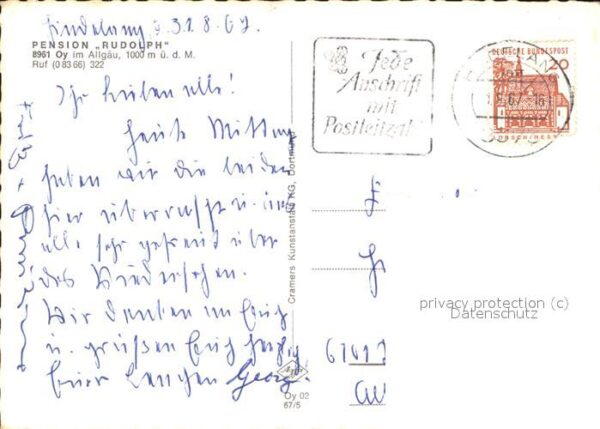 Hindelang, 31.8.67.
PENSION „RUDOLPH"
8961 Oy im Allgäu, 1000 m ü. d. M.
Ruf (0 83 66) 322
Ihr Lieben alle!
Heute Mittag
haben wir die beiden
hier überrascht u. uns
alle sehr gefreut über
das Wiedersehen.
Wir denken an Euch
u. grüßen Euch herzlich
Eure Georg.
Cramers Kunstanstalt KG, Dortmund
Oy 02
67/5
Jede
Anschrift
mit
Postleitzahl
DEUTSCHE BUNDESPOST
20
privacy protection (c)
Datenschutz